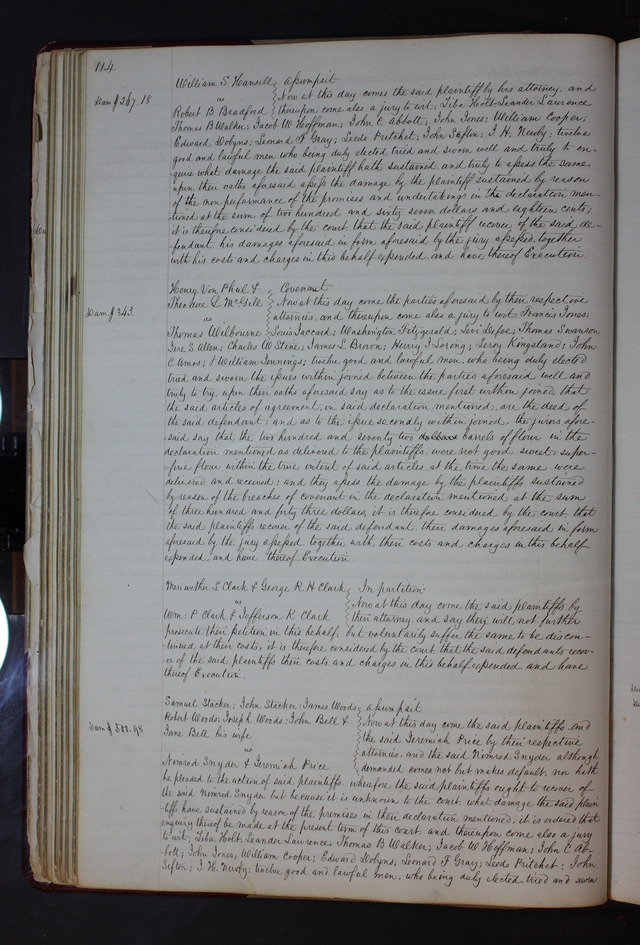 114
William S. Hansell } assumpsit
Dam $267.18
vs } Now at this day comes the said plaintiff by his attorney, and
Robert B Bradford } thereupon come also a jury to wit; Ziba Holt; Leander Lawrence
Thomas B Walker; Jacob W Hoffman; John C Abbott; John Jones; William Cooper;
Edward Dobyns; Leonard F Gray; Leeds Pritchet; John Sefton; I. H. Newby; twelve
good and lawful men who being duly elected tried and sworn well and truly to en-
quire what damage the said plaintiff hath sustained, and truly to assess the same
upon their oaths aforesaid assess the damage by the plaintiff sustained by reason
of the non performance of the promises and undertakings in the declaration men-
tioned at the sum of two hundred and sixty seven dollars and eighteen cents;
it is therefore considered by the court that the said plaintiff recover of the said de-
fendant his damages aforesaid in form aforesaid by the jury assessed together
with his costs and charges in this behalf expended and have thereof Execution.
Henry Von Phul & } Covenant
Theodore L McGill } Now at this day come the parties aforesaid by their respective
Dam $343.
vs } attornies, and thereupon come also a jury to wit: Francis Jones;
Thomas Wilbourne } Louis Jaccard; Washington Fitzgerald; Levi Dufoe; Thomas Swanson
Jere S Allen; Charles W Stone; James L Brown; Henry I Loring; Leroy Kingsland; John
C Amos; & William Jennings; twelve good and lawful men, who being duly elected
tried and sworn the issues within joined between the parties aforesaid well and
truly to try, upon their oaths aforesaid say as to the issue first within joined, that
the said articles of agreement, in said declaration mentioned, are the deed of
the said defendant; and as to the issue secondly within joined, the jurors afore-
said say that the two hundred and seventy two barrels of flour in the
declaration mentioned as delivered to the plaintiffs were not good sweet super-
fine flour within the true intent of said articles at the time the same were
delivered and received; and they assess the damage by the plaintiffs sustained
by reason of the breaches of covenant in the declaration mentioned at the sum
of three hundred and forty three dollars, it is therefore considered by the court that
the said plaintiffs recover of the said defendant their damages aforesaid in form
aforesaid by the jury assessed together with their costs and charges in this behalf
expended, and have thereof Execution.
Meriwether L Clark & George R H Clark } In partition
vs } Now at this day come the said plaintiffs by
Wm. P Clark & Jefferson K Clark } their attorney, and say they will not further
prosecute their petition in this behalf, but voluntarily suffer the same to be discon-
tinued at their costs, it is therefore considered by the court that the said defendants recov-
er of the said plaintiffs their costs and charges in this behalf expended and have
thereof Execution.
Samuel Stacker; John Stacker; James Woods } assumpsit
Robert Woods; Joseph Woods; John Bell & } Now at this day come the said plaintiffs and
Jane Bell his wife } the said Jeremiah Price by their respective
vs } attornies, and the said Nimrod Snyder although
Nimrod Snyder & Jeremiah Price } demanded comes not but makes default; nor hath
he pleaded to the action of said plaintiffs wherefore the said plaintiffs ought to recover of
the said Nimrod Snyder but because it is unknown to the court what damage the said plain-
tiffs have sustained by reason of the premises in their declaration mentioned, it is ordered that
enquiry thereof be made at the present term of this court and thereupon come also a jury
to wit; Ziba Holt, Leander Lawrence, Thomas B Walker; Jacob W Hoffman; John C Ab-
bott; John Jones, William Cooper; Edward Dobyns; Leonard F Gray; Leeds Pritchet; John
Sefton; I. H. Newby; twelve good and lawful men, who being duly elected, tried and sworn